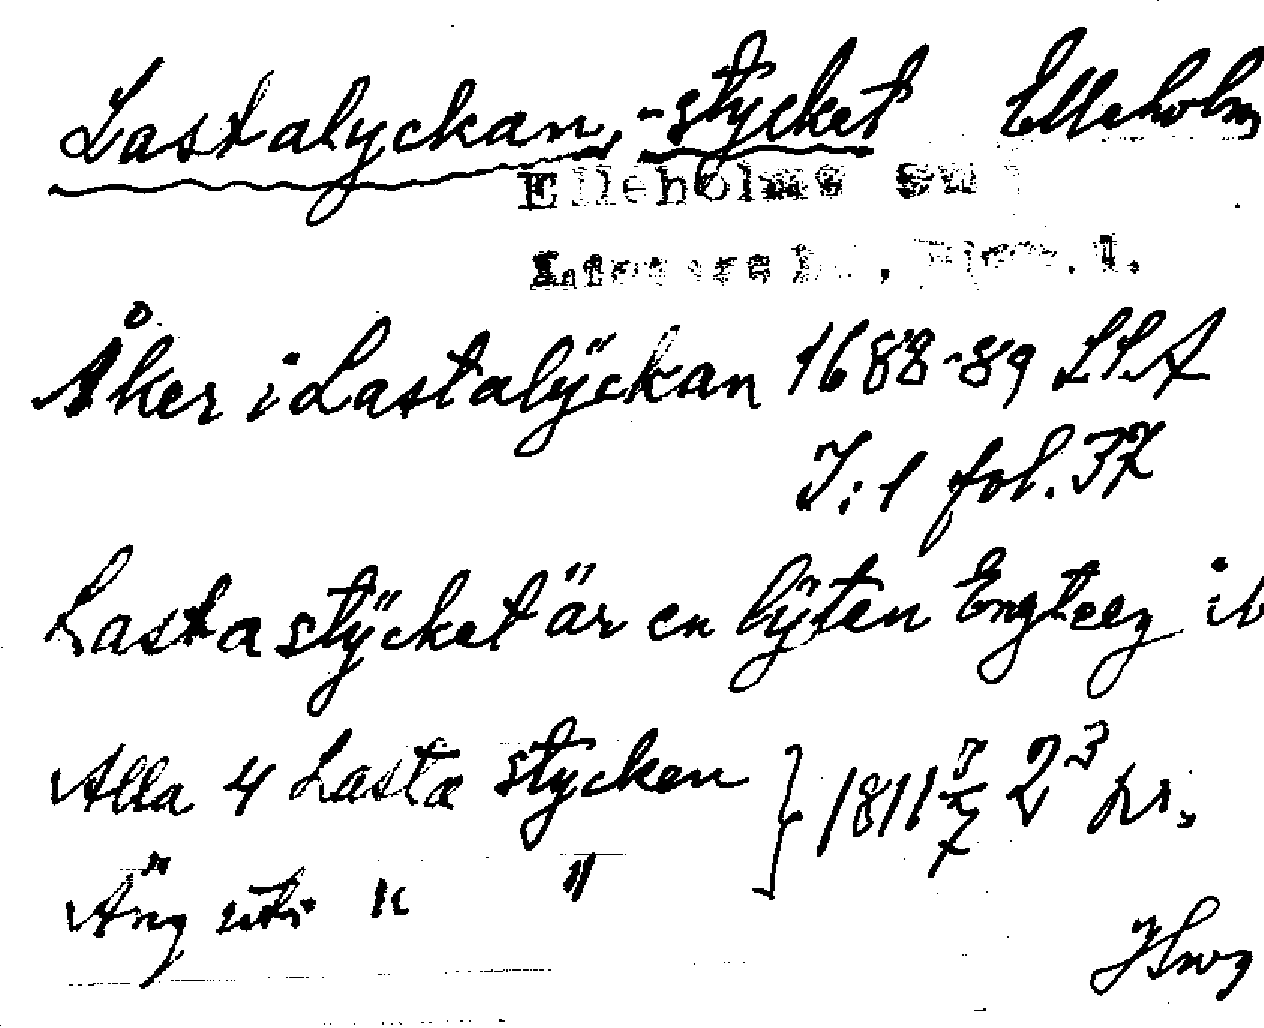 Lastalyckan, -stycket Elleholm
Elleholms sn
Listers hd, Blek. l.
Åker i Lastalÿckan 1688-89 LLA
I:1 fol. 37
Lasta stÿcket är en lÿten Engteeg ib
Alla 4 Lasta stycken } 1811 2³ hr.
Äng uti " "